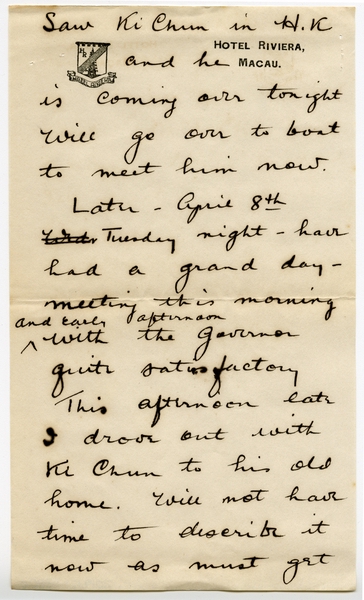 Saw Ki Chun in H.K
HOTEL RIVIERA,
MACAU.
and he
is coming over tonight
Will go over to boat
to meet him now.
Later - April 8th
Tuesday night - have
had a grand day -
meeting this morning
and early afternoon
with the Governor
quite satisfactory
This afternoon late
I drove out with
Ki Chun to his old
home. Will not have
time to describe it
now as must get